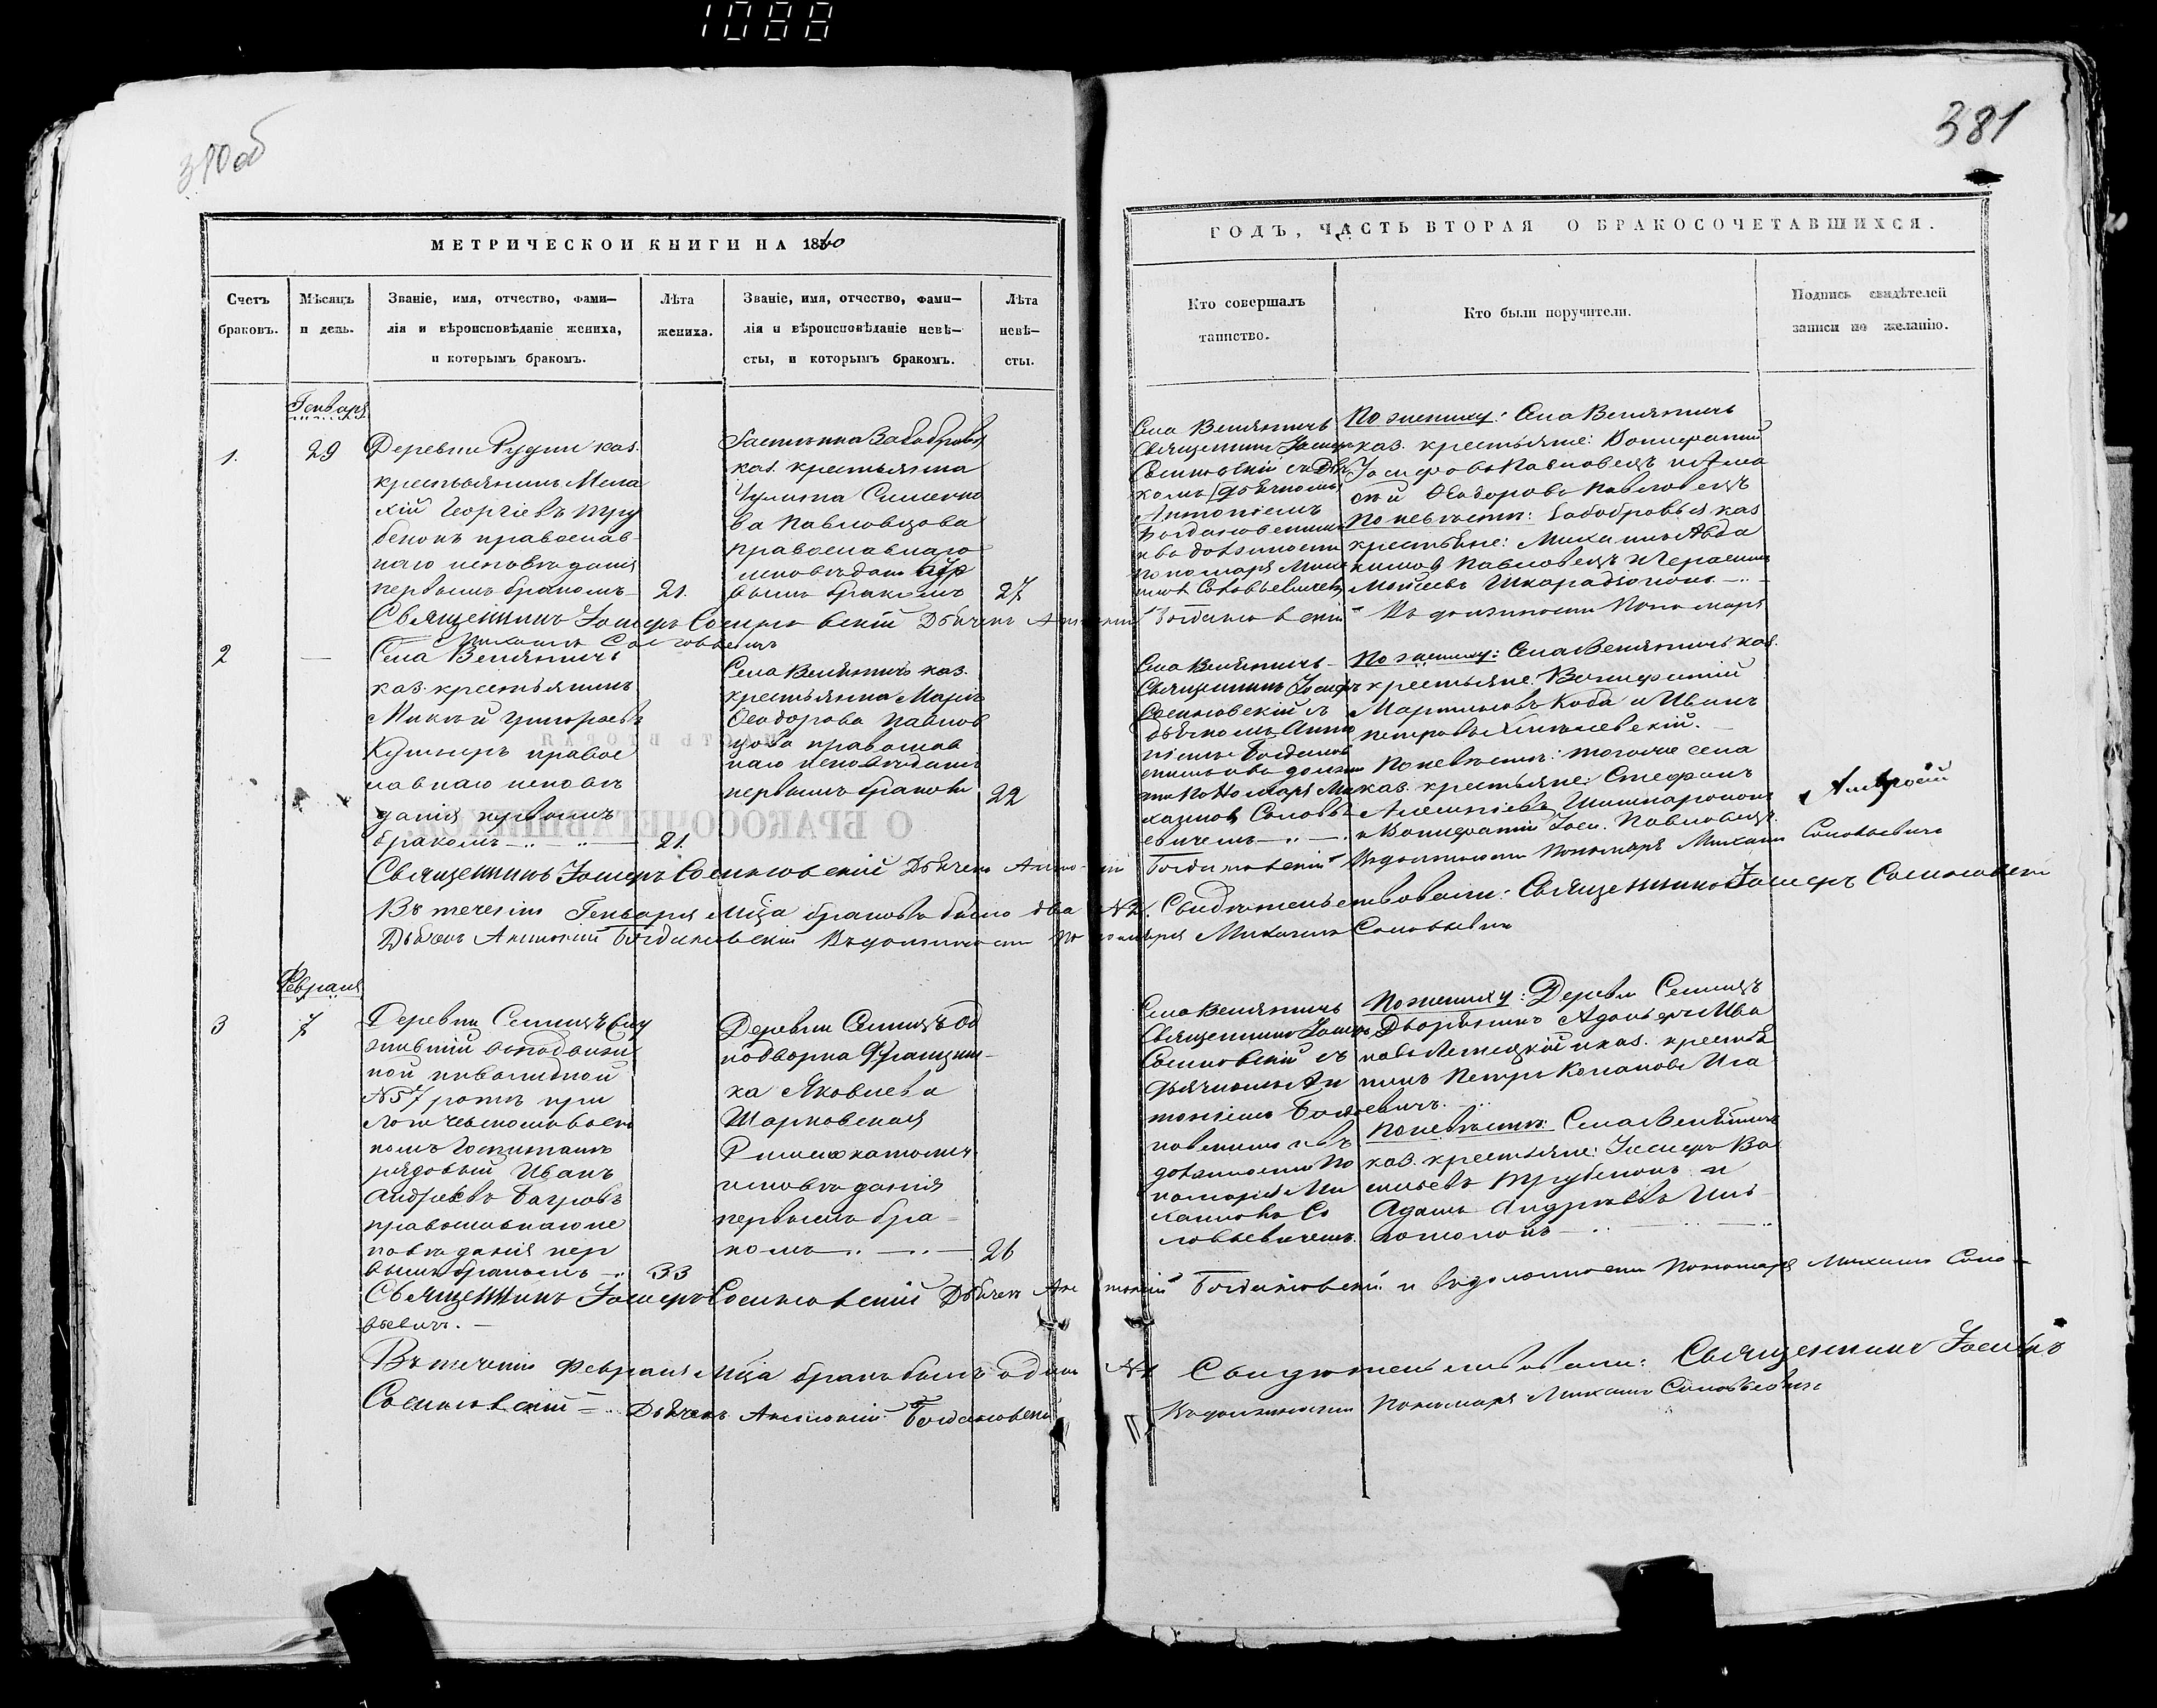 1088
380об
381
МЕТРИЧЕСКОЙ КНИГИ НА 1860
Счетъ браковъ.
Мѣсяцъ и день.
Званіе, имя, отчество, фами-
лія и вѣроисповѣданіе жениха,
и которымъ бракомъ.
Лѣта
жениха.
Званіе, имя, отчество, фами-
лія и вѣроисповѣданіе невѣ-
сты, и которымъ бракомъ.
Лѣта
невѣ-
сты.
ГОДЪ, ЧАСТЬ ВТОРАЯ О БРАКОСОЧЕТАВШИХСЯ.
Кто совершалъ
таинство.
Кто были поручители.
Подпись свидѣтелей
записи по желанію.
Генварь
1.
29
Деревни Рудни каз.
крестьянинъ Мела
хій Георгіевъ Тру
бенокъ православ
наго исповѣданія
первымъ бракомъ
21.
каз. крестьянка
Улита Симеоно
ва Павловцова
православнаго
исповѣдан
вымъ бракомъ
27
Села Велятичъ
Священникъ Іосифъ
Сосиновскій съ Дья
комъ
Антоніемъ
Богдановскимъ
и въ должности
пономаря Миха
иломъ Соловьевичемъ
По жениху: Села Велятичъ
каз. крестьяне: Вонифатій
Іосифовъ Павловецъ и
Ѳеодоровъ Павловецъ
По невѣстѣ: Забобровья каз
крестьяне: Михаилъ Авда
кимовъ Павловецъ и Герасимъ
Моисеевъ
Священникъ Іосифъ Сосиновскій Дьячекъ Антоній Богдановскій Въ должности Пономаря
Михаилъ Соловьевичъ
2
Села Велятичъ
каз. крестьянинъ
Григорьевъ
Кушнеръ правос
лавнаго исповѣ
данія первымъ
бракомъ
21.
Села Велятичъ каз.
крестьянка Марія
Ѳеодорова Павлов
цова православ
наго исповѣданія
первымъ бракомъ
22
Села Велятичъ
Священникъ Іосифъ
Сосиновскій съ
дьячкомъ Анто
ніемъ Богданов
скимъ и въ должно
сти Пономаря Ми
хаиломъ Соловь
евичемъ
По жениху: Села Велятичъ каз.
крестьяне: Вонифатій
Мартиновъ Коба и Иванъ
Петровъ
По невѣстѣ: тогоже села
каз. крестьяне: Стефанъ
Алексіевъ
и Вонифатій Іоси. Павловецъ.
Священникъ Іосифъ Сосиновскій Дьячекъ Антоній Богдановскій Въ должности Пономаря Михаилъ Соловьевичъ
Въ теченіи Генваря мѣсяца браковъ было два №2. Свидѣтельствовали: Священникъ Іосифъ Сосиновскій
Дьячекъ Антоній Богдановскій Въ должности Пономаря Михаилъ Соловьевичъ
Февраля
3
7
Деревни Селищъ Слу
жившій въ подвиж
ной инвалидной
№57 ротѣ при
воен
номъ Госпиталѣ
рядовый Иванъ
Андреевъ Багровъ
православнаго ис
повѣданія пер
вымъ бракомъ
33
Деревни Селищъ Од
нодворка Францыш
ка Яковлева
Шарковская
Римскокатолич
исповѣданія
первымъ бра
комъ
26
Села Велятичъ
Священникъ Іосифъ
Сосиновскій съ
дьячкомъ Ан
тоніемъ Богда
новскимъ и въ
должности По
номаря Ми
хаиломъ Со
ловьевичемъ.
По жениху: Деревни Селищъ
Дворянинъ Адольфъ Ива
новъ и каз. крестья
нинъ Петръ
По невѣстѣ: Села Велятичъ
каз. крестьяне: Іосифъ Ва
сильевъ Трубенокъ и
Адамъ Андреевъ
Священникъ Іосифъ Сосиновскій Дьячекъ Антоній Богдановскій и въ должности Пономаря Михаилъ Соло-
вьевичъ.
Въ теченіи Февраля мѣсяца бракъ былъ одинъ №1 Свидѣтельствовали: Священникъ Іосифъ
Сосиновскій Дьячекъ Антоній Богдановскій Въ должности Пономаря Михаилъ Соловьевичъ